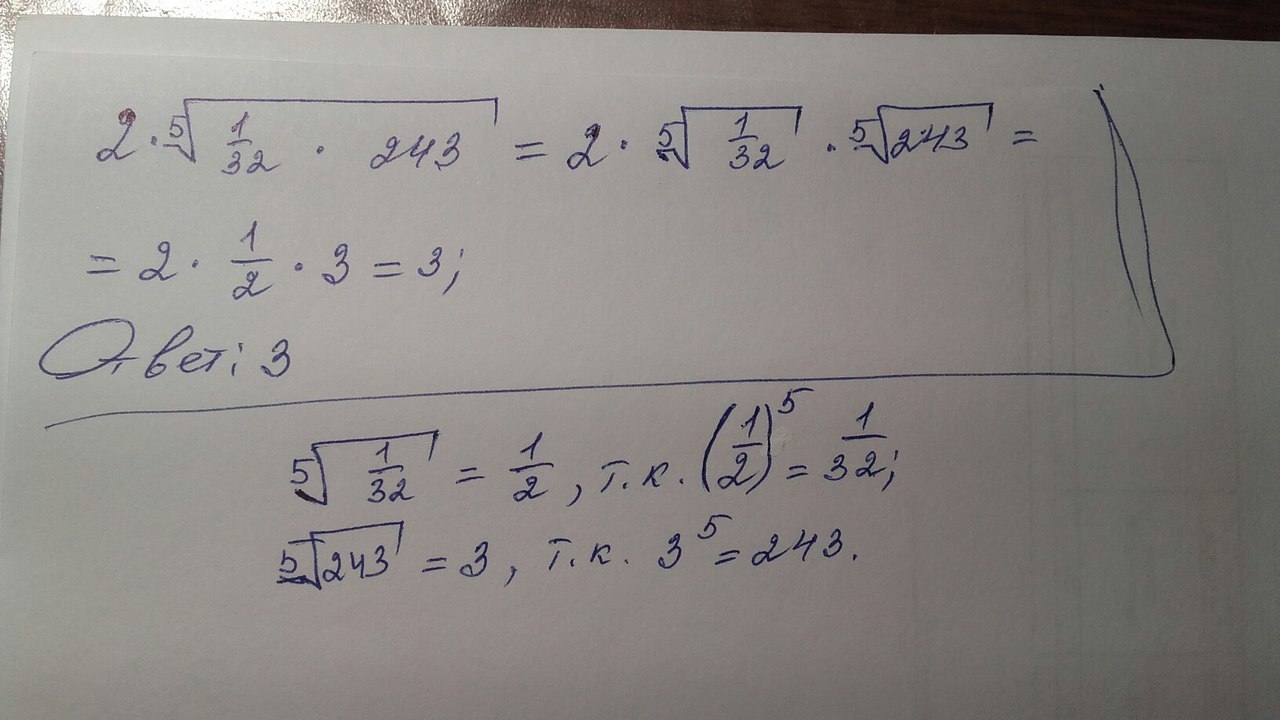 2 · ⁵√(1/32 · 243) = 2 · ⁵√(1/32) · ⁵√243 =
= 2 · 1/2 · 3 = 3;
Ответ: 3
⁵√(1/32) = 1/2, т.к. (1/2)⁵ = 1/32;
⁵√243 = 3, т.к. 3⁵ = 243.